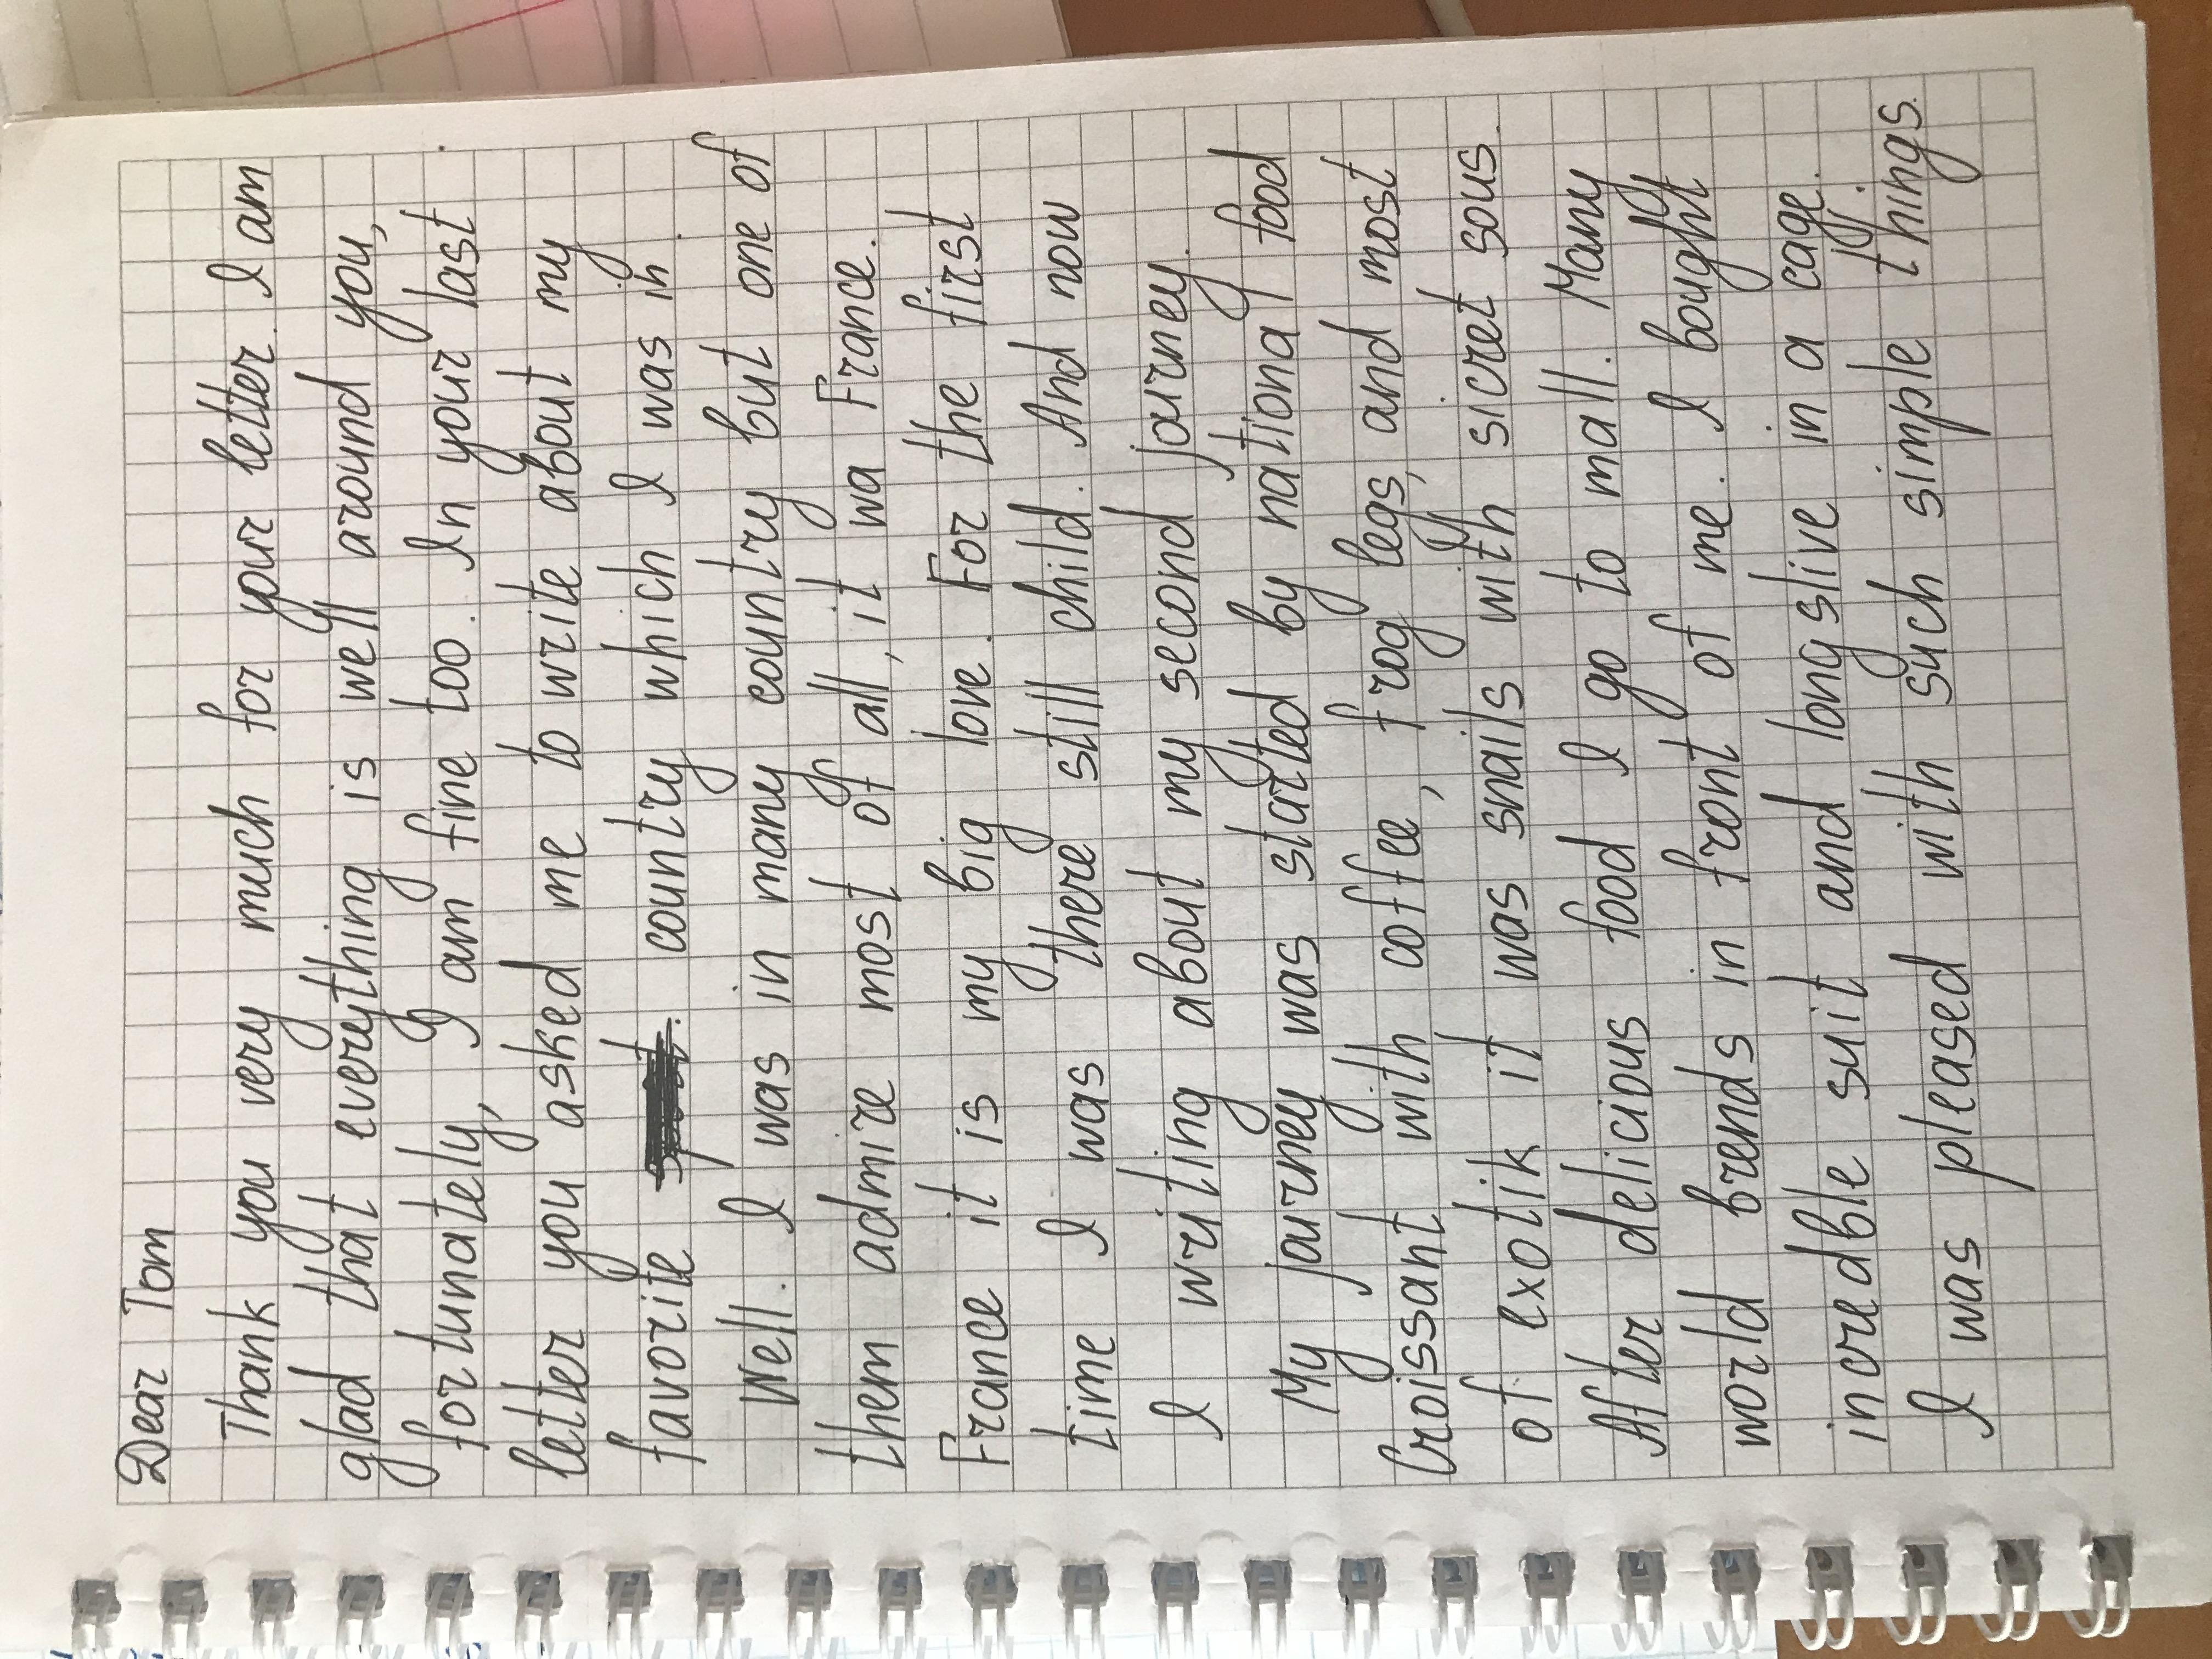 Dear Tom
Thank you very much for your letter. I am
glad that everything is well around you,
fortunately, I am fine too. In your last
letter you asked me to write about my
favorite country which I was in.
Well. I was in many country but one of
them admire most of all, it wa France.
France it is my big love. For the first
time I was there still child. And now
I writing about my second journey.
My journey was started by nationa food
Croissant with coffee, frog legs, and most
of exotik it was snails with sicret sous.
After delicious food I go to mall. Many
world brends in front of me. I bought
incredble suit and longslive in a cage.
I was pleased with such simple things.